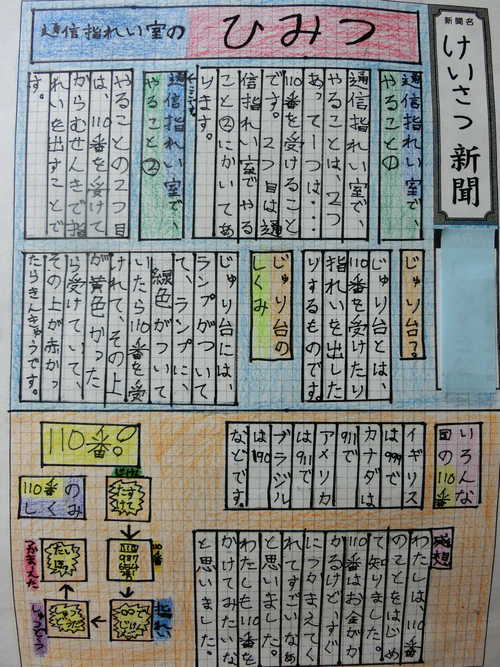 新聞名
けいさつ新聞
通信指れい室の
ひみつ
通信指れい室で、
やること①
通信指れい室で、
やることは、2つ
あって1つは…
110番を受けること
です。2つ目は通
信指れい室でやる
こと②にかいてあ
ります。
通信指れい室で、
やること②
やることの2つ目
は、110番を受けて
からむせんきで指
れいを出すことで
す。
じゅり台って。
じゅり台とは、
110番を受けたり
指れいを出した
りするものです。
じゅり台の
しくみ
じゅり台には、
ランプがついて
て、ランプに、
緑色がついて
いたら110番を受
けれて、その上
が黄色かった
ら受けていて、
その上が赤かっ
たらきんきゅうです。
いろんな
国の110番
イギリス
は999で
カナダは
911で
アメリカ
は911で
ブラジル
は190
などです。
感想
わたしは、110番
のことをはじめ
て知りました。
110番はお金がか
かるけど、すぐ
につかまえてく
れてすごいなぁ
と思いました。
わたしも110番を
かけてみたいな
と思いました。
110番。
110番の
しくみ
たす
けて
110番
指れい
しゅつどう
たいほ
つかまえた